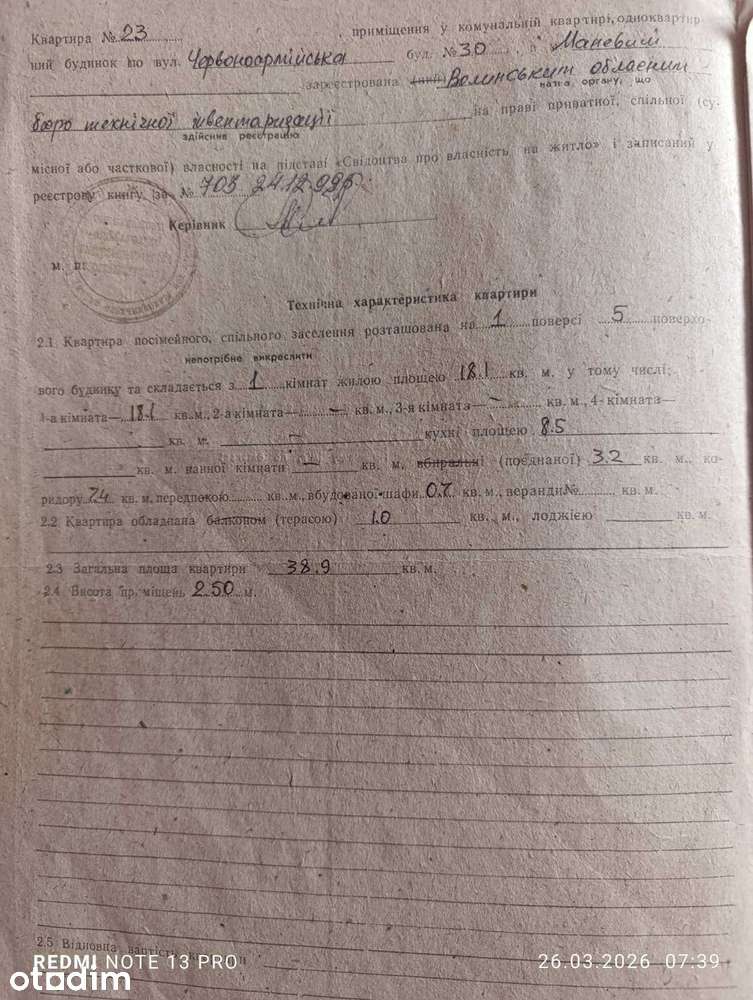 Квартира № 23 , приміщення у комунальній квартирі, одноквартир
ний будинок по вул. Червоноармійська буд. № 30 , в Маневичі
зареєстрована Волинським обласним
назва органу, що
бюро технічної інвентаризації на праві приватної, спільної (су-
здійснив реєстрацію
місної або часткової) власності на підставі «Свідоцтва про власність на житло» і записаний у
реєстрову книгу за № 703 24.12.92р.
Керівник
м. п.
Технічна характеристика квартири
2.1. Квартира посімейного, спільного заселення розташована на 1 поверсі 5 поверхо-
непотрібне викреслити
вого будинку та складається з 1 кімнат жилою площею 18.1 кв. м. у тому числі:
1-а кімната— 18.1 кв. м., 2-а кімната— – кв. м., 3-я кімната— – кв. м., 4- кімната—
кв. м. – кухні площею 8.5
кв. м. ванної кімнати – кв. м. вбиральні (поєднаної) 3.2 кв. м., ко-
ридору 7.4 кв. м. передпокою кв. м., вбудованої шафи 0.7 кв. м., веранди № кв. м.
2.2. Квартира обладнана балконом (терасою) 1.0 кв. м., лоджією кв. м.
2.3 Загальна площа квартири 38.9 кв. м.
2.4. Висота приміщень 2.50 м.
2.5 Відновна вартість
REDMI NOTE 13 PRO 26.03.2026 07:39
otadim